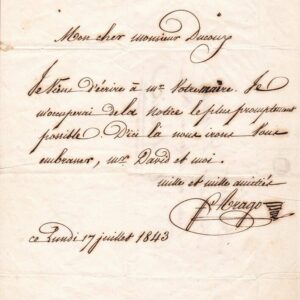 Mon cher monsieur Ducoux
Je viens d'écrire à mr Votre maire. Je
m'occuperai de la Notice le plus promptement
possible. D'ici là nous irons vous
embrasser, mr David et moi.
mille et mille amitiés
F. Arago
ce Lundi 17 juillet 1843